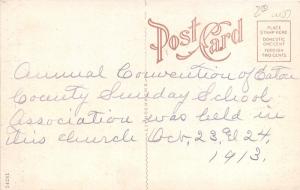 Post Card
PLACE
STAMP HERE
DOMESTIC
ONE CENT
FOREIGN
TWO CENTS
Annual Convention of Eaton
County Sunday School
Association was held in
this church Oct. 23, & 24,
1913.